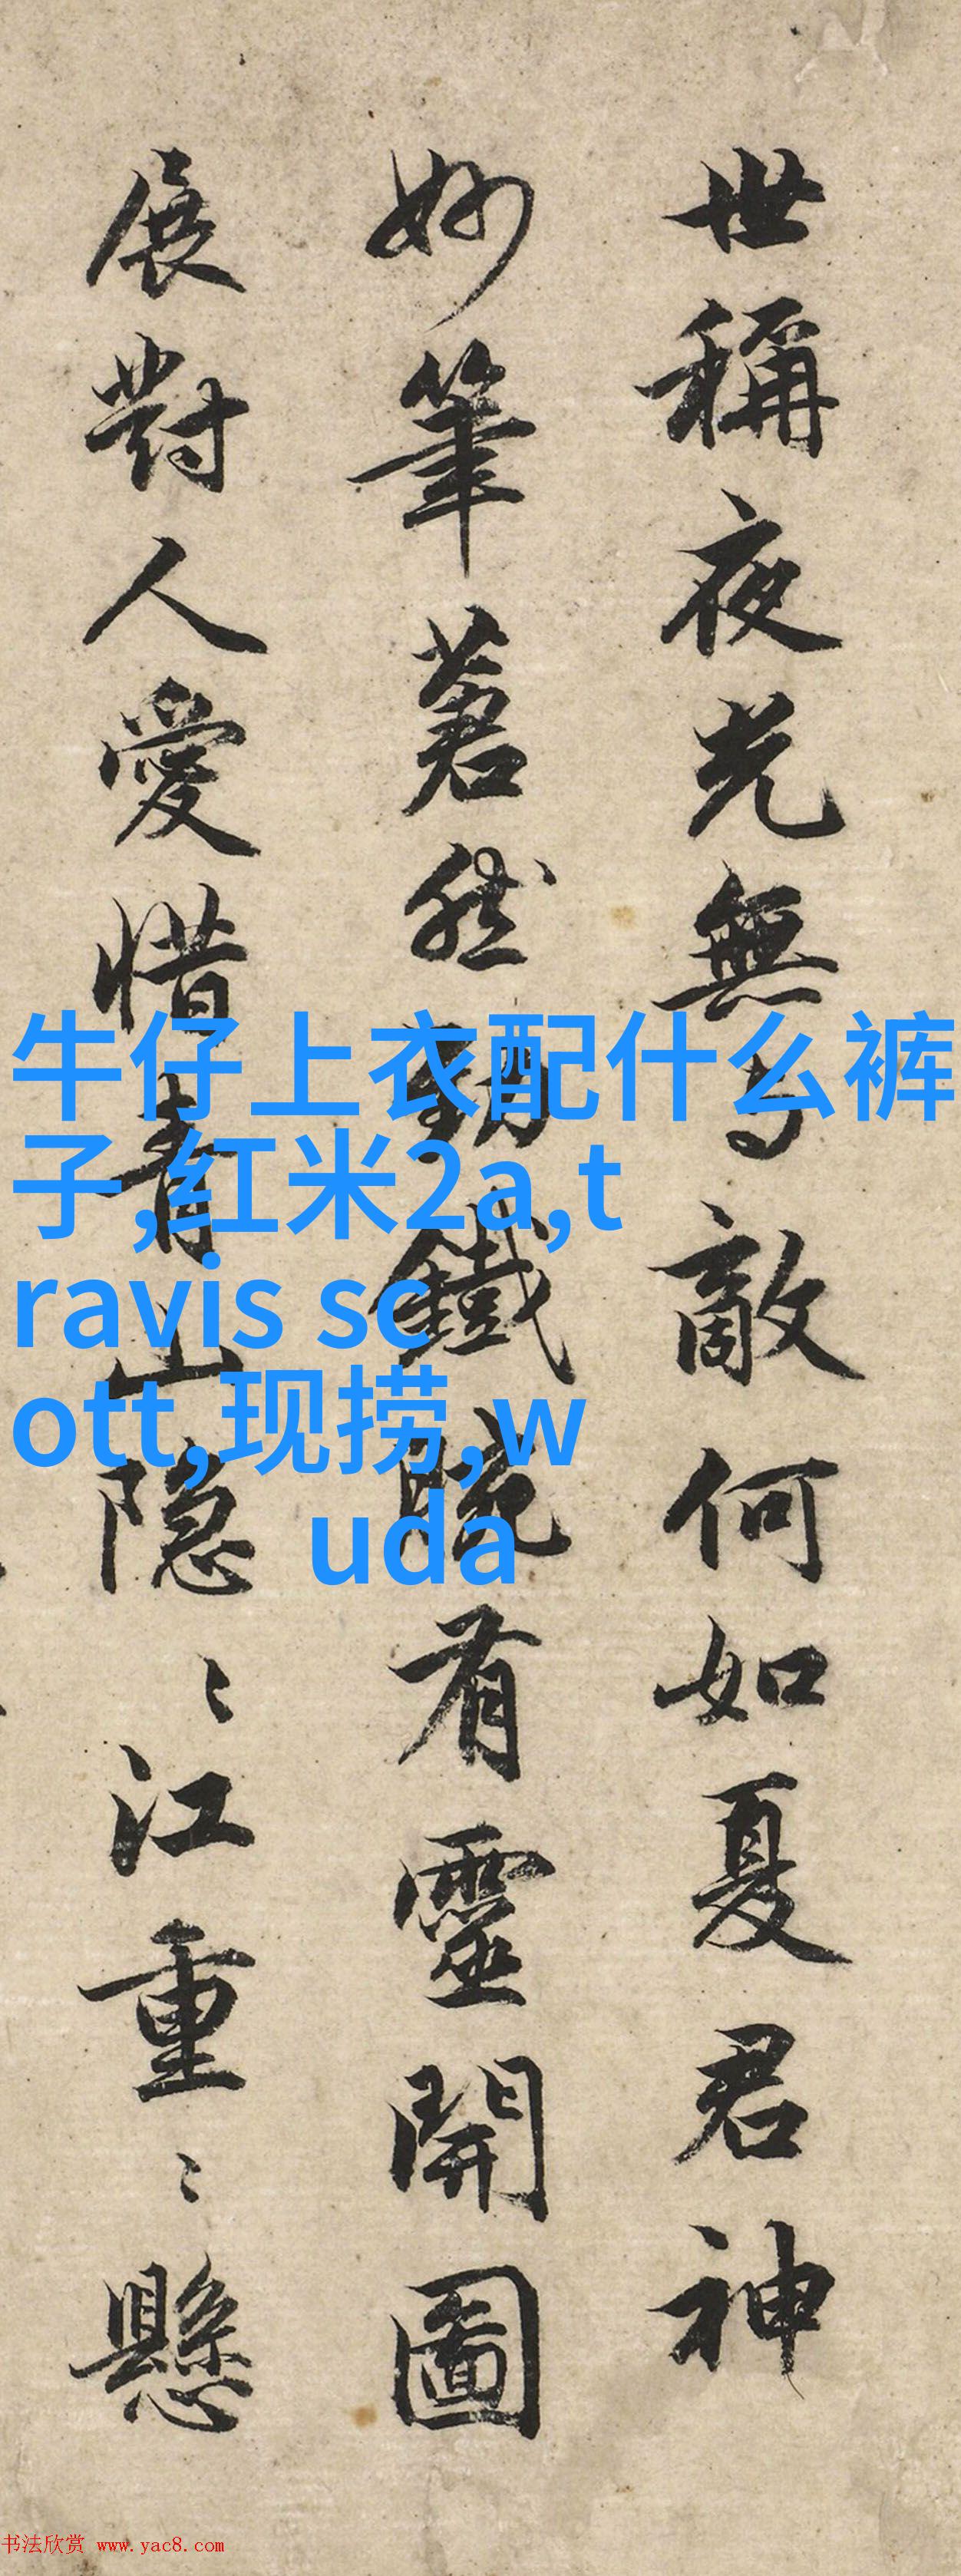 世稱夜光無与敵何如夏君神
妙筆蒼然鐵腕有靈開圖
展對人愛惜青山隐〻江重〻懸
牛仔上衣配什么裤
子,红米2a,t
ravis sc
ott,现捞,w
uda
书法欣赏 www.yac8.com